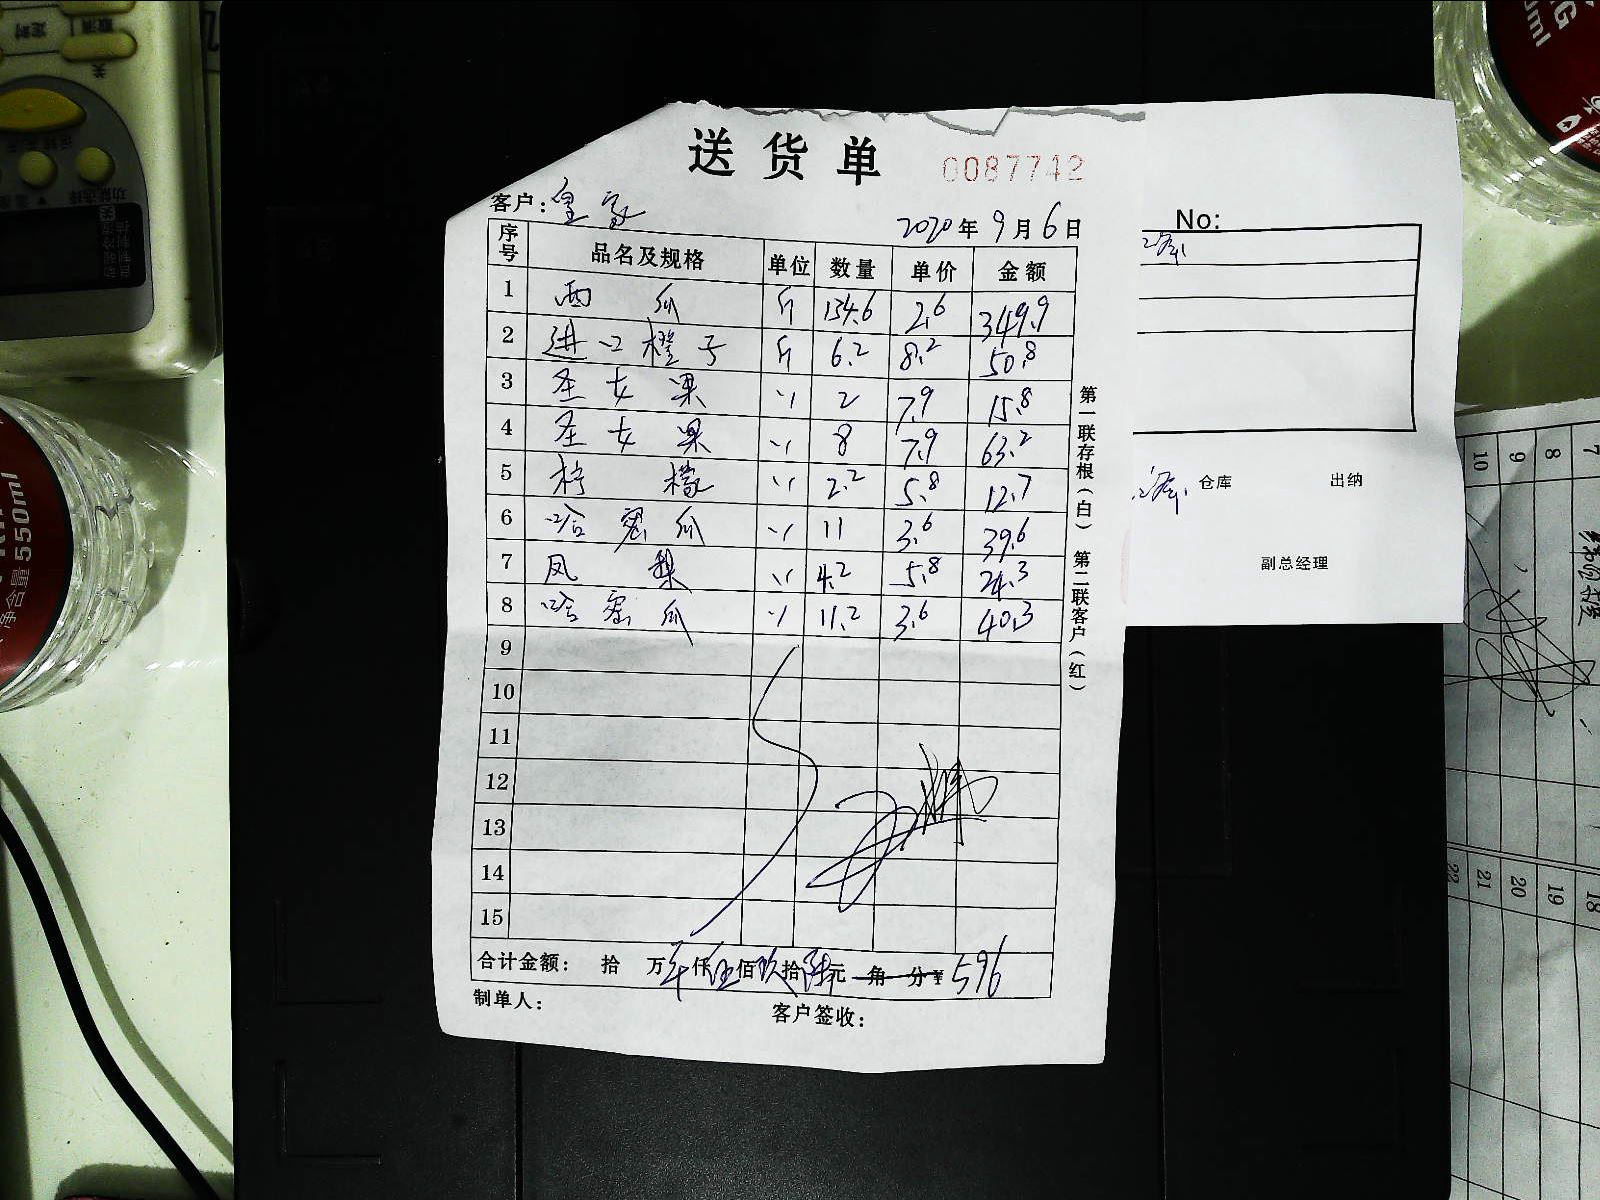 送货单 0087742
客户: 皇家
2020年9月6日
序号 品名及规格 单位 数量 单价 金额
1 西瓜 斤 134.6 2.6 349.9
2 进口橙子 斤 6.2 8.2 50.8
3 圣女果 〃 2 7.9 15.8
4 圣女果 〃 8 7.9 63.2
5 柠檬 〃 2.2 5.8 12.7
6 哈密瓜 〃 11 3.6 39.6
7 凤梨 〃 4.2 5.8 24.3
8 哈密瓜 〃 11.2 3.6 40.3
9
10
11
12
13
14
15
合计金额: 拾 万 仟伍佰玖拾陆元 角 分¥596
制单人: 客户签收:
第一联存根(白) 第二联客户(红)
No:
仓库 出纳
副总经理
净含量 550ml
定时 取消
关
功能选择
7
8
9
10
18
19
20
21
22